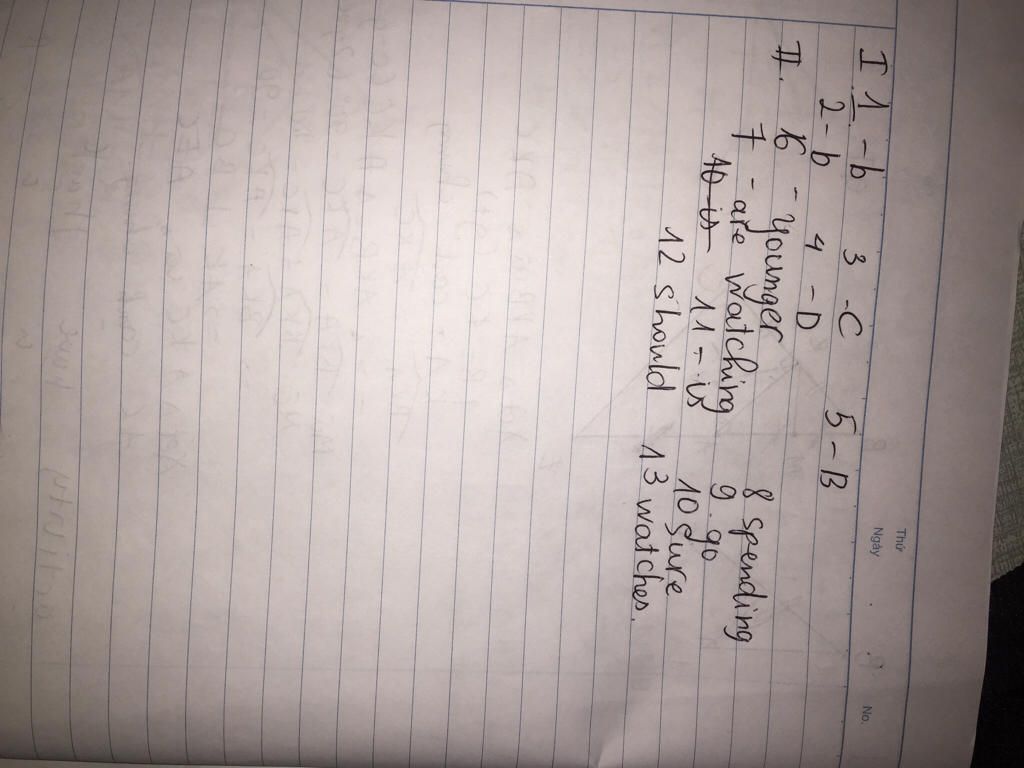 Thứ
Ngày . . No.
I 1 - b 3 - C 5 - B
2 - b 4 - D
II. 16 - younger 8 spending
7 - are watching 9. go
10 is 11 - is 10 sure
12 should 13 watches.